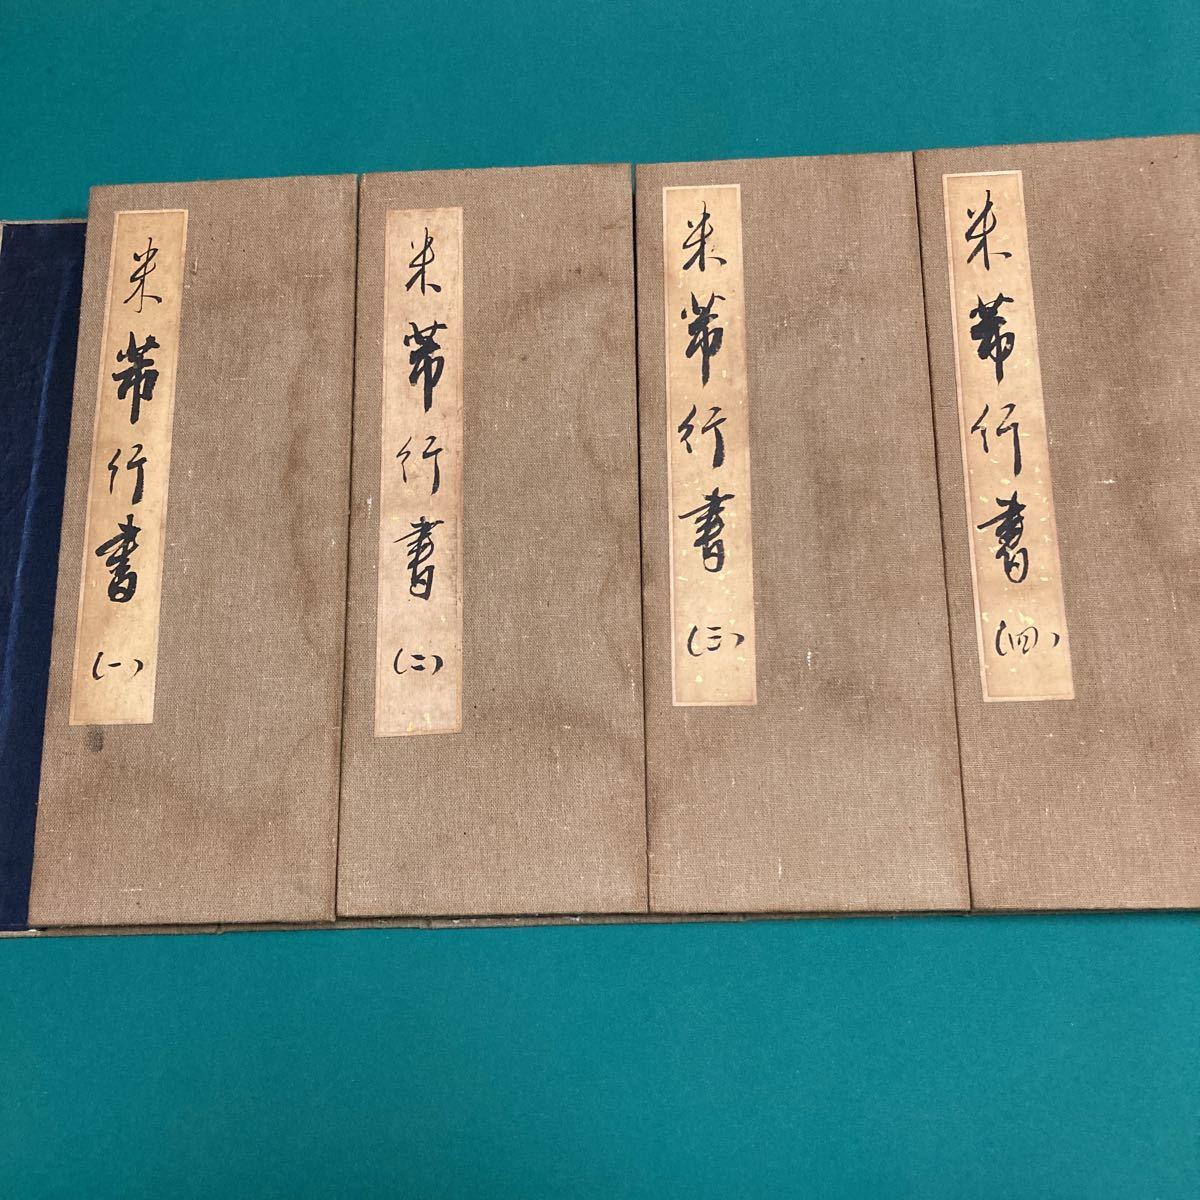 米芾行書(一)
米芾行書(二)
米芾行書(三)
米芾行書(四)